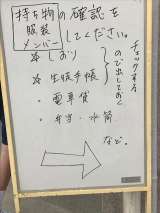 持ち物
服装
メンバー
の確認を
してください。
☆ しおり
☆ 生徒手帳
・電車賃
・弁当・水筒
など。
チェックする
ので出しておく